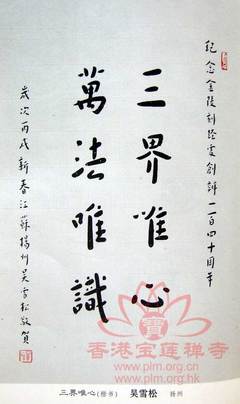 纪念金陵刻经处创办一百四十周年
三界唯心
萬法唯識
歲次丙戌新春江蘇揚州吴雪松敬賀
香港宝莲禅寺
www.plm.org.hk
www.plm.org.cn
三界唯心(楷书) 吴雪松 扬州